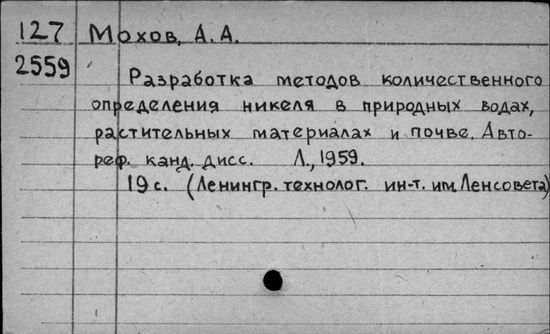 127 Мохов, А. А.
2559
Разработка методов количественного
определения никеля в природных водах,
растительных материалах и почве. Авто-
реф. канд. дисс. Л., 1959.
19 с. (Ленингр. технолог. ин-т. им. Ленсовета)